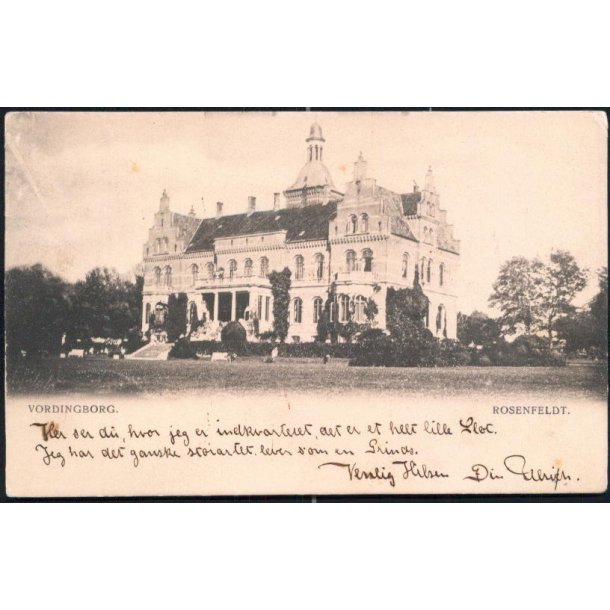 VORDINGBORG. ROSENFELDT.
Her ser du, hvor jeg er indkvarteret, det er et helt lille Slot.
Jeg har det ganske storartet, lever som en Prinds.
Venlig Hilsen Din Ulrich.